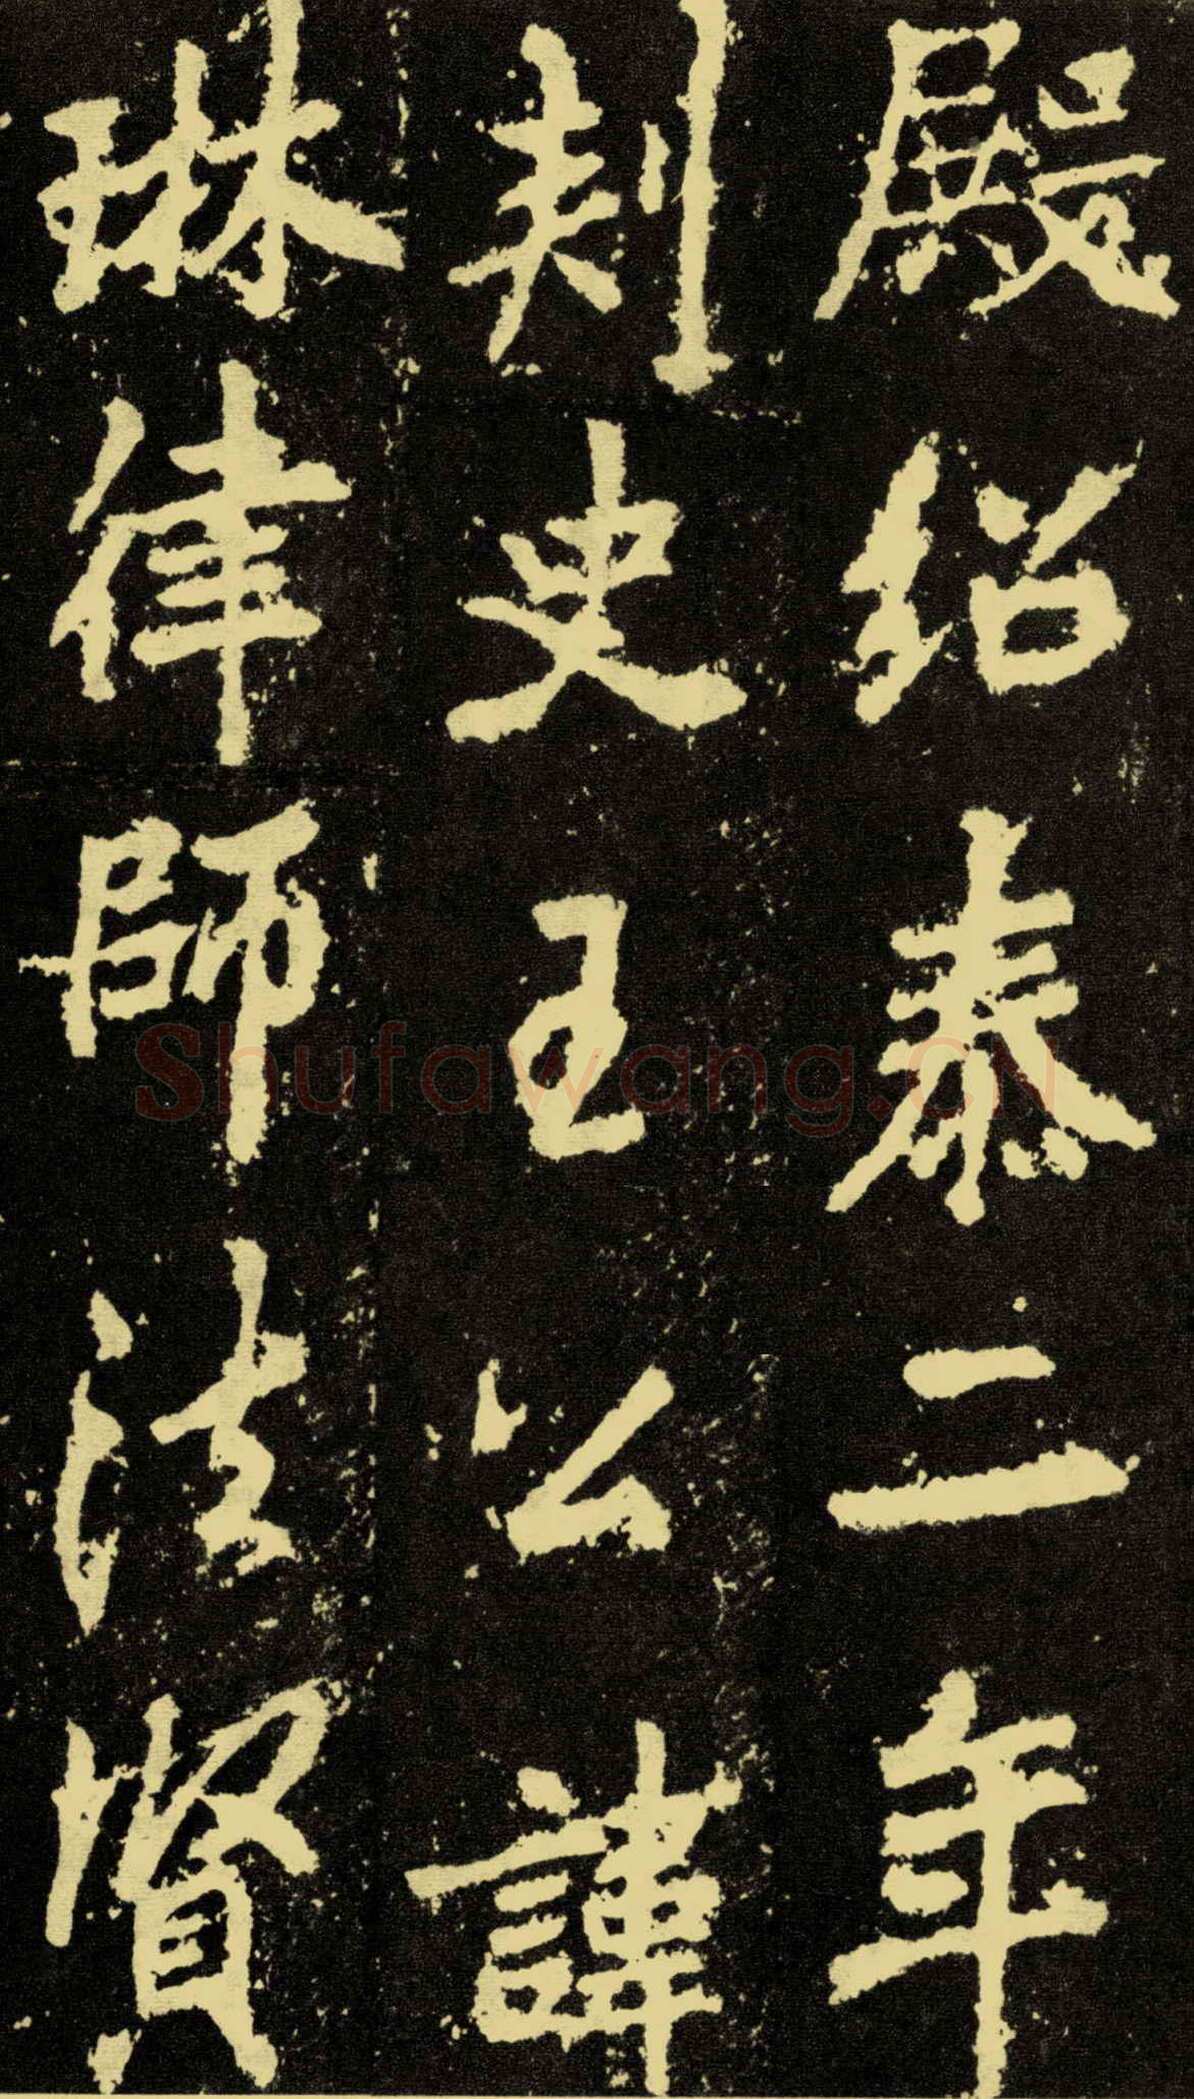 殿紹泰二年
刺史王公諱
琳律師法賢
Shufawang.CN